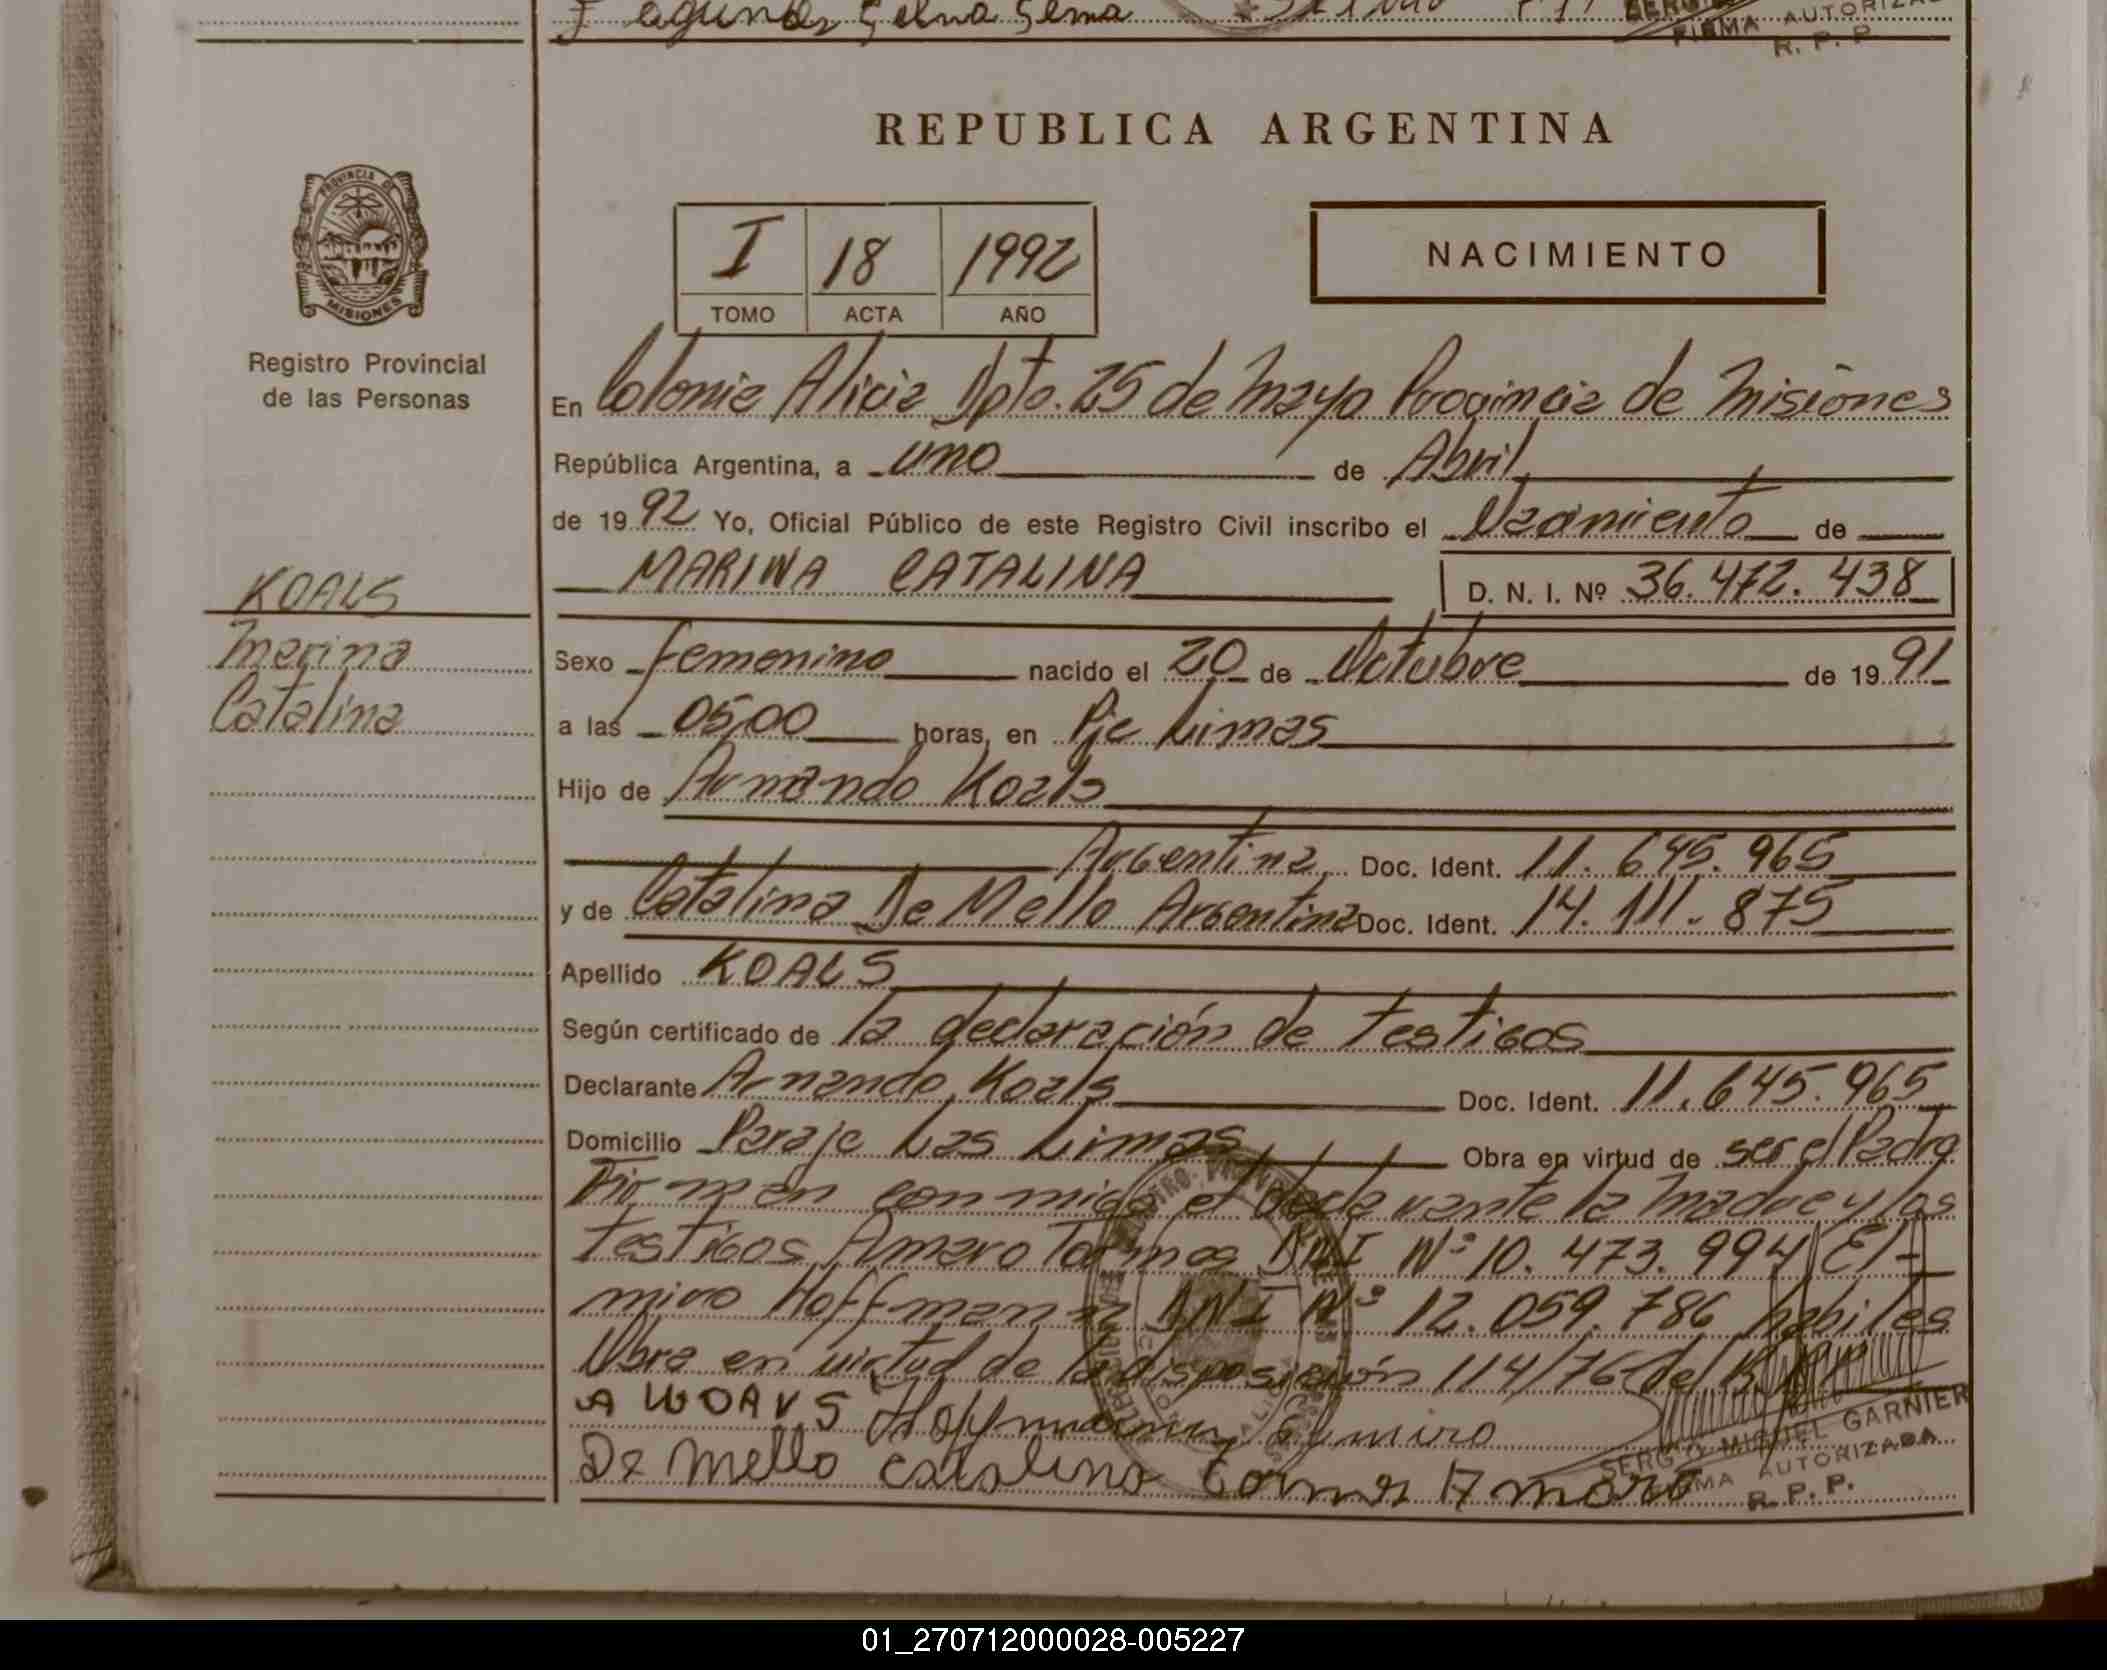 Fagundez Selva Gema
FIRMA AUTORIZADA
R. P. P.
REPUBLICA ARGENTINA
PROVINCIA DE
MISIONES
Registro Provincial
de las Personas
I 18 1992
TOMO ACTA AÑO
NACIMIENTO
En Colonia Alicia Dpto. 25 de Mayo Provincia de Misiones
República Argentina, a uno de Abril
de 1992 Yo, Oficial Público de este Registro Civil inscribo el Nacimiento de
MARINA CATALINA D. N. I. Nº 36.472.438
KOALS
Marina
Catalina
Sexo femenino nacido el 20 de Octubre de 1991
a las 05,00 horas, en Pje Limas
Hijo de Armando Koals
Argentina Doc. Ident. 11.645.965
y de Catalina De Mello Argentina Doc. Ident. 14.111.875
Apellido KOALS
Según certificado de la declaración de testigos
Declarante Armando Koals Doc. Ident. 11.645.965
Domicilio Paraje Las Limas Obra en virtud de ser el Padre
Firman conmigo el declarante la Madre y los
testigos Amaro Tormes DNI Nº 10.473.994 El-
miro Hoffmann DNI Nº 12.059.786 habiles
Obra en virtud de la disposición 114/76 del R.P.P
A WOAVS Hoffmann Elmiro
De Mello Catalina Tormes Amaro
SERGIO MIGUEL GARNIER
FIRMA AUTORIZADA
R. P. P.
01_270712000028-005227